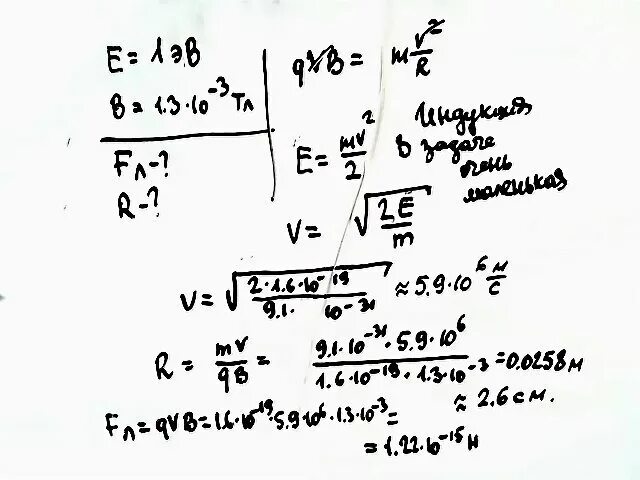 E = 1 эВ
B = 1.3·10⁻³ Тл
Fл - ?
R - ?
qvB = m v²/R
E = mv²/2
Индукция
в задаче
очень
маленькая
V = √(2E/m)
V = √(2·1.6·10⁻¹⁹/9.1·10⁻³¹) ≈ 5.9·10⁶ м/с
R = mv/qB = 9.1·10⁻³¹·5.9·10⁶/1.6·10⁻¹⁹·1.3·10⁻³ = 0.0258 м
≈ 2.6 см.
Fл = qVB = 1.6·10⁻¹⁹·5.9·10⁶·1.3·10⁻³ =
= 1.22·10⁻¹⁵ Н